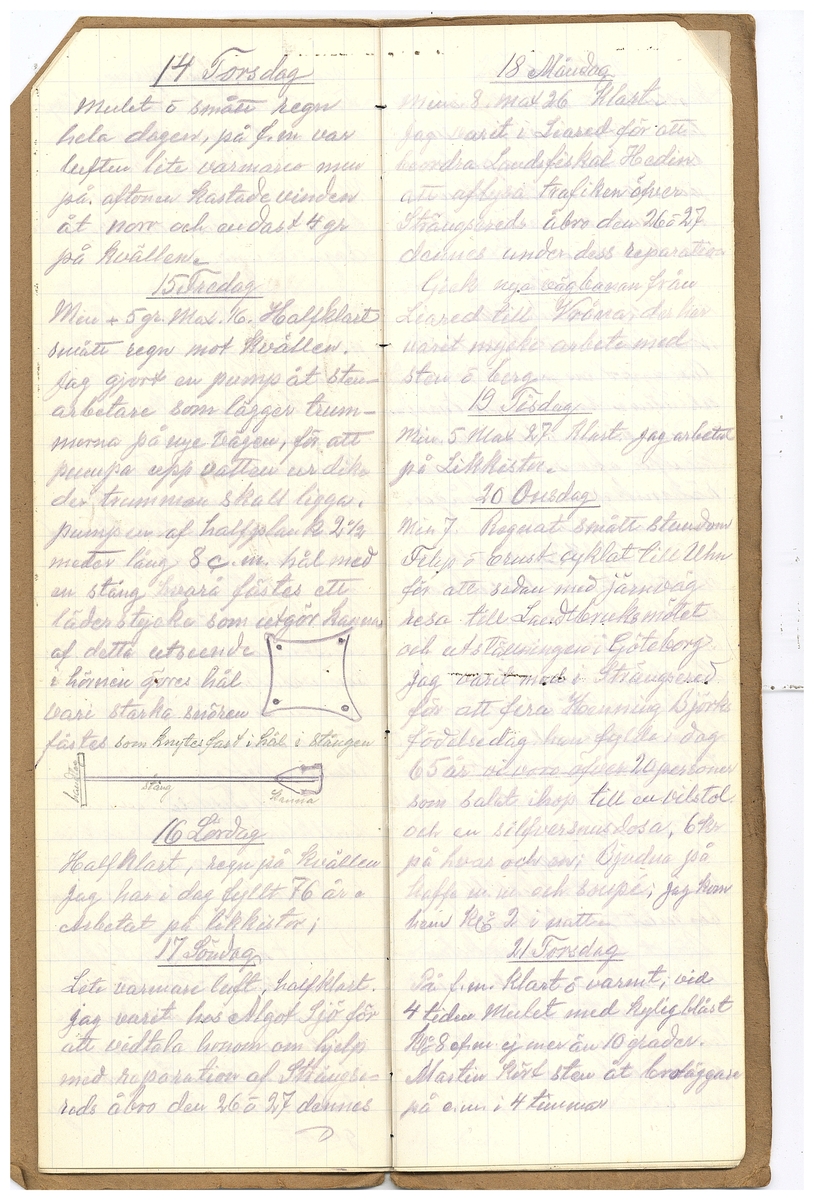 14 Torsdag
Mulet ö smått regn
hela dagen, på f.m var
luften lite varmare men
på aftonen kastade vinden
åt norr och endast 4 gr
på kvällen.
15 Fredag
Min + 5 gr. Max. 16. Halfklart
smått regn mot kvällen.
Jag gjort en pump åt sten-
arbetare som lägger trum-
morna på nye vägen, för att
pumpa upp vatten ur dike
der trumman skall ligga.
pumpen af halfplank 2 1/2
meter lång 8 c.m. hål med
en stång hvarå fästes ett
läderstycke som utgör kanna
af detta utseende
i hörnen göres hål
vari starka snören
fästes som knytes fast i hål i stången
handtag
stång
Kanna
16 Lördag
Halfklart, regn på kvällen
Jag har i dag fyllt 76 år.
Arbetat på likkistor;
17 Söndag
Lite varmare luft, halfklart.
Jag varit hos Algot Sjö för
att vidtala honom om hjelp
med reparation af Strängse-
reds åbro den 26 ö 27 dennes
18 Måndag
Min 8. max 26 Klart.
Jag varit i Liared för att
beordra Landsfiskal Hedin
att aflysa trafiken öfver
Strängsereds åbro den 26 ö 27
dennes under dess reparation
Gick nya vägbanan från
Liared till Kråna, der har
varit mycke arbete med
sten ö berg.
19 Tisdag
Min. 5 Max 27. Klart. Jag arbetat
på Likkistor.
20 Onsdag
Min 7. Regnat smått stundom
Filip ö Ernst cyklat till Ulhn
för att sedan med järnväg
resa till Landtbruksmötet
och utställningen i Göteborg.
Jag varit med i Strängsered
för att fira Henning Björks
födelsedag han fyllde i dag
65 år vi voro öfver 20 personer
som salat ihop till en vilstol
och en silfversnusdosa, 6 kr
på hvar och en; Bjudna på
kaffe m.m och soupé; jag kom
hem Kl 2 i natten
21 Torsdag
På f.m. Klart ö varmt, vid
4 tiden Mulet med kylig blåst
Kl 8 efm ej mer än 10 grader.
Martin kört sten åt broläggare
på e.m. i 4 timmar